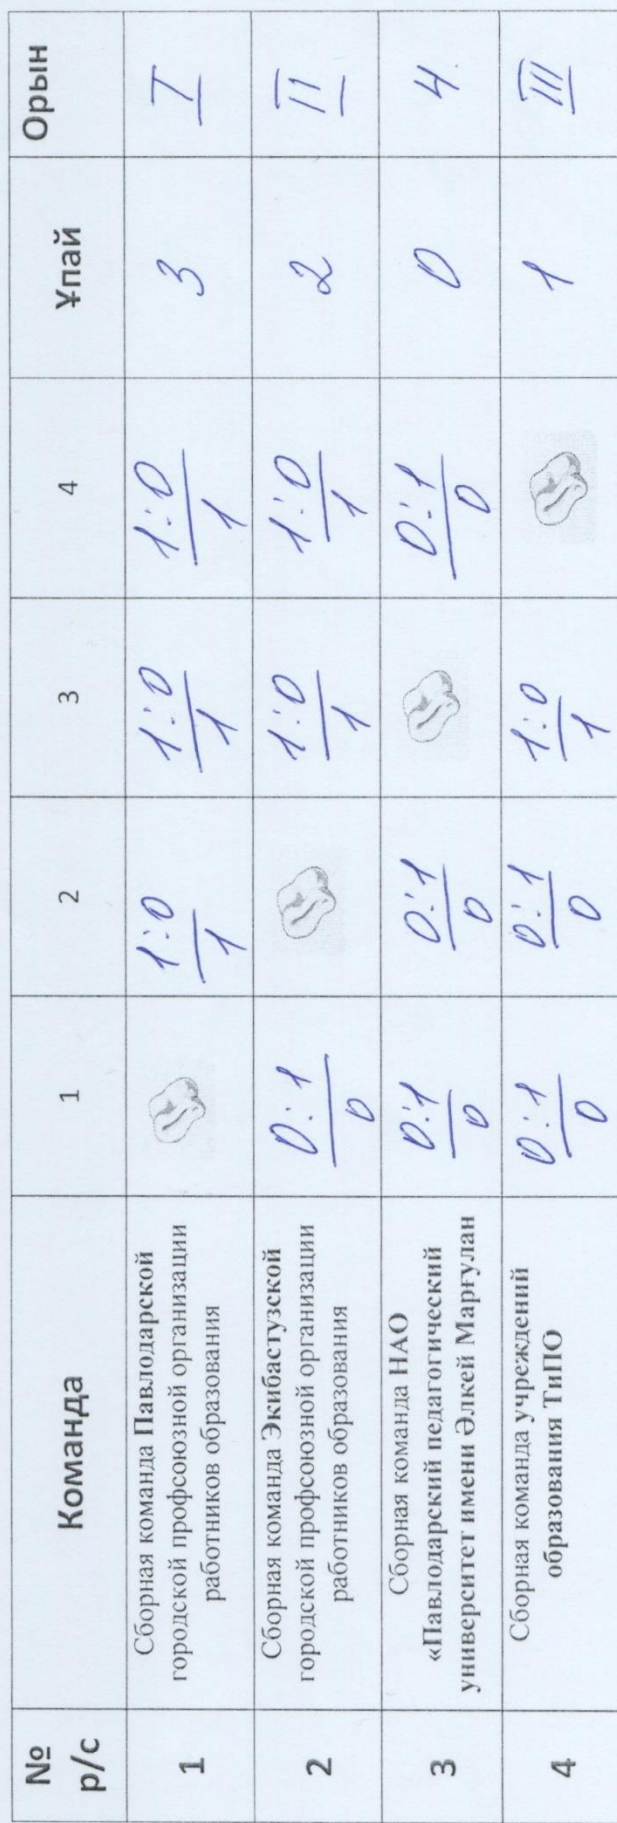 № р/с Команда 1 2 3 4 Ұпай Орын
1 Сборная команда Павлодарской городской профсоюзной организации работников образования 1:0 1 1:0 1 1:0 1 3 I
2 Сборная команда Экибастузской городской профсоюзной организации работников образования 0:1 0 1:0 1 1:0 1 2 II
3 Сборная команда НАО «Павлодарский педагогический университет имени Әлкей Марғулан 0:1 0 0:1 0 0:1 0 0 4
4 Сборная команда учреждений образования ТиПО 0:1 0 0:1 0 1:0 1 1 III